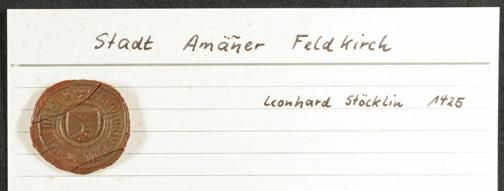 Stadt Amäñer Feldkirch
Leonhard Stöcklin 1425